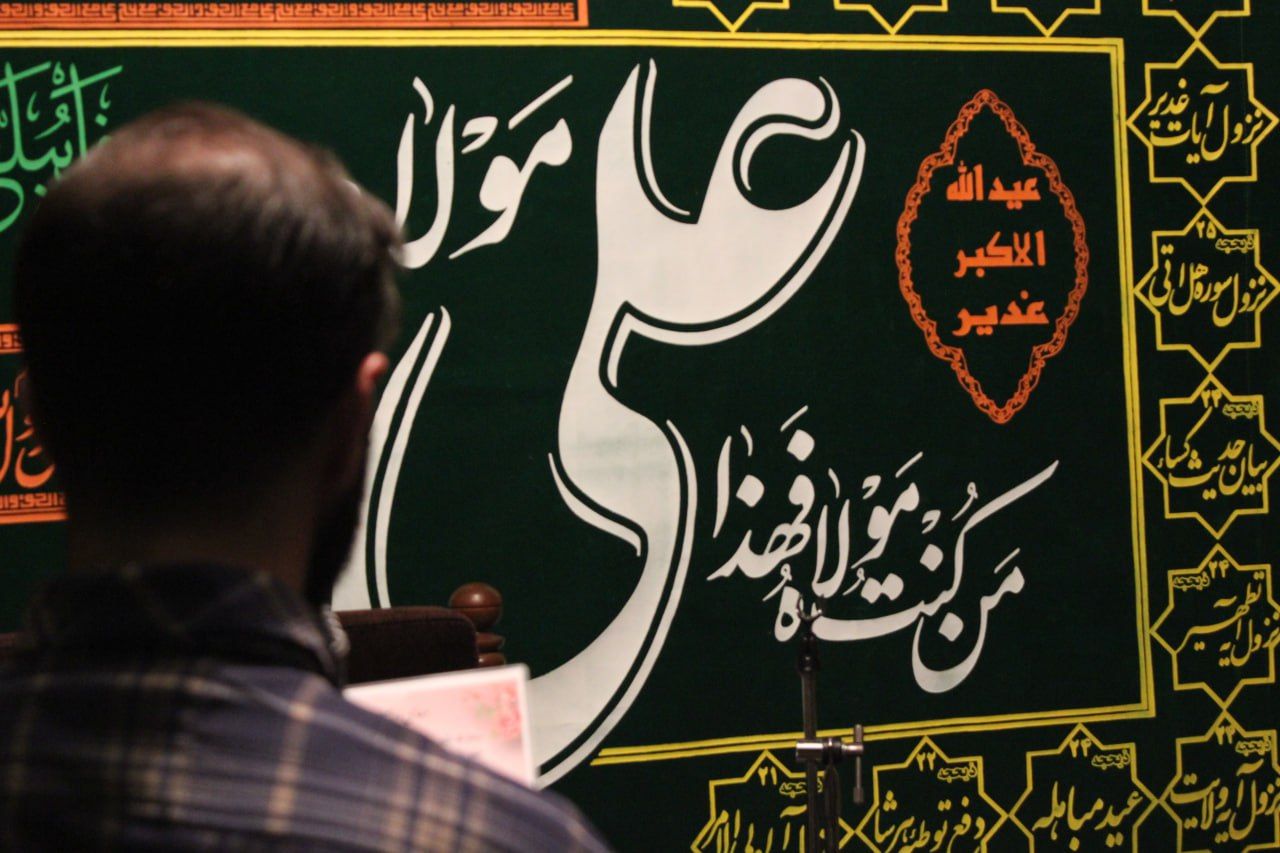 من کنت مولاه فهذا
علی
مولاه
عید الله
الاکبر
غدیر
نزول آیات غدیر
۲۵ ذیحجه
نزول سوره هل اتی
۲۴ ذیحجه
بیان حدیث کساء
۲۴ ذیحجه
نزول آیه تطهیر
۲۴ ذیحجه
نزول آیه ولایت
۲۴ ذیحجه
عید مباهله
۲۲ ذیحجه
۲۱ ذیحجه